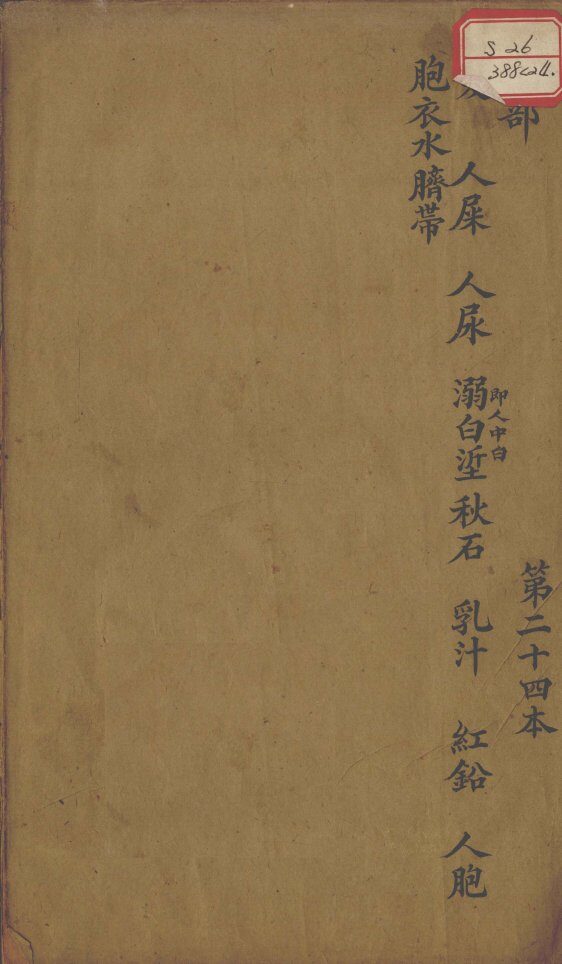 S 26
388(24.
部
第二十四本
人屎 人尿 溺白垽 即人中白 秋石 乳汁 紅鉛 人胞
胞衣水 臍帶